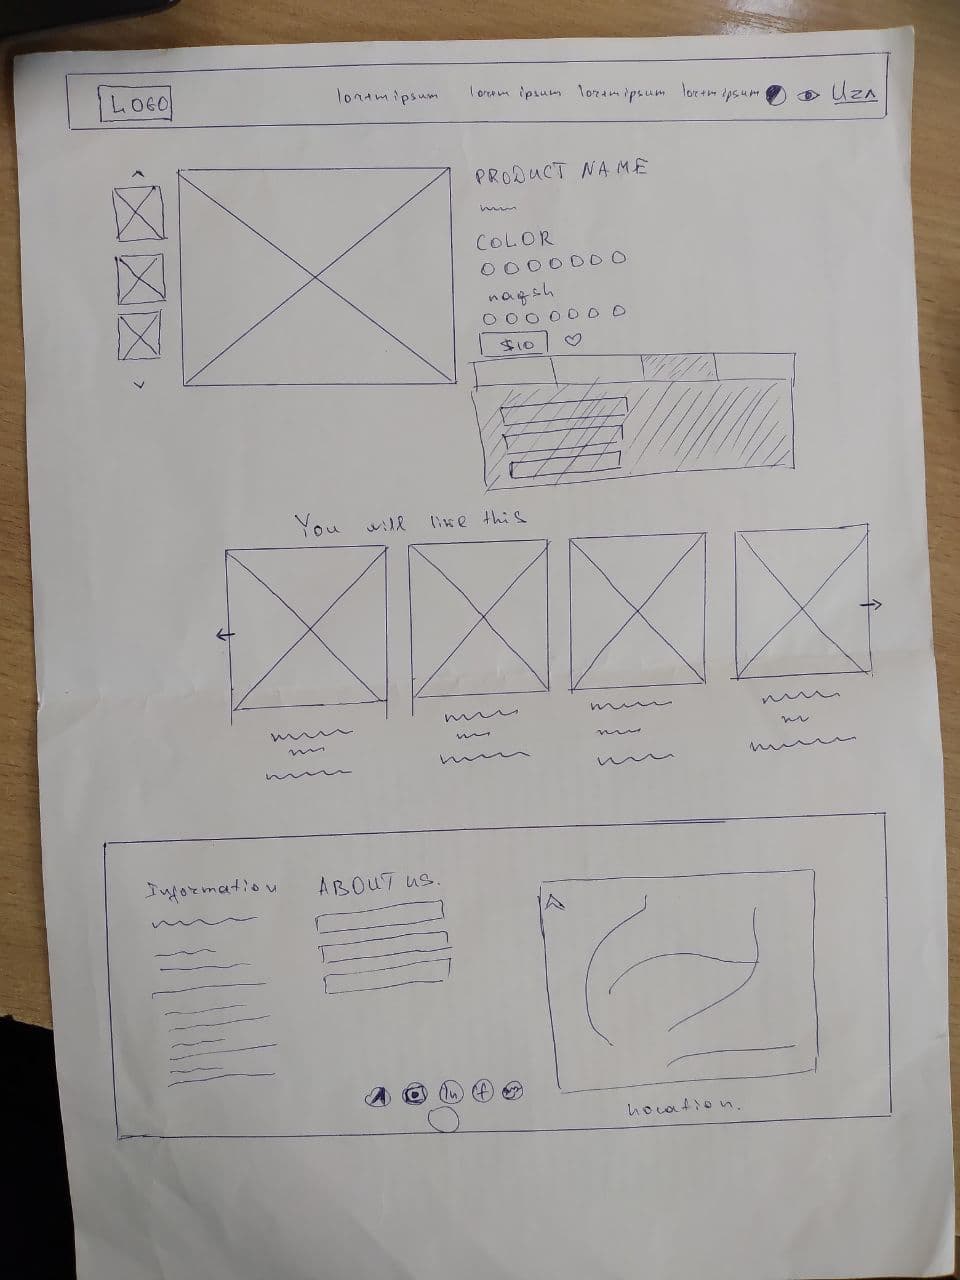 LOGO lorem ipsum lorem ipsum lorem ipsum lorem ipsum UZA
PRODUCT NAME
COLOR
naqsh
$10
You will like this
Information ABOUT us.
in f
Location.